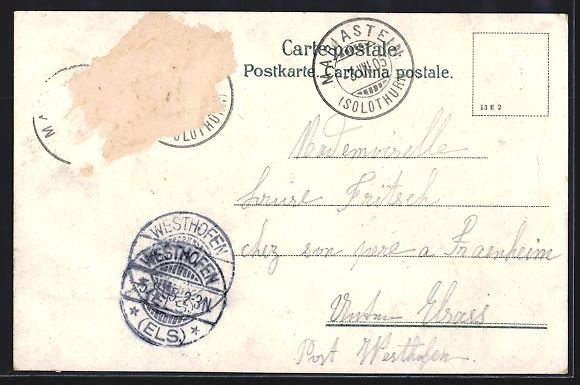 Carte postale.
Postkarte. Cartolina postale.
MARIASTEIN
VIII.05
(SOLOTHURN)
M
SOLOTHURN
13 E 2
Mademoiselle
Louise Fritsch
chez son père a Fraenheim
Unter Elsass
Post Westhofen
WESTHOFEN
WESTHOFEN
(ELS.)